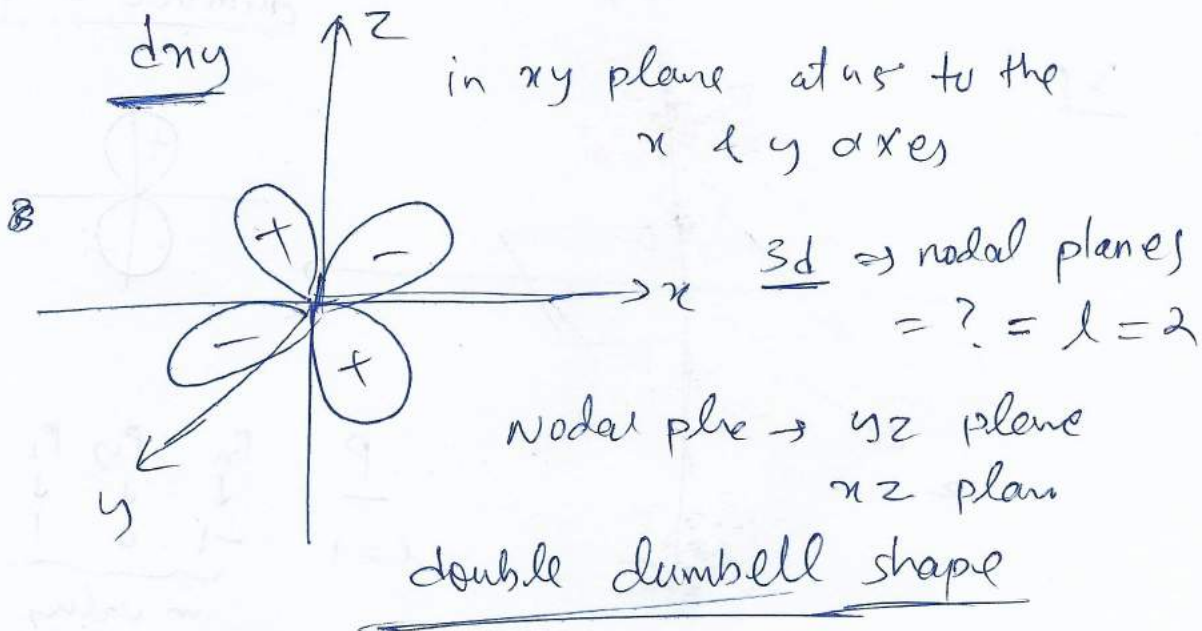 dxy
Z
in xy plane at 45° to the
x & y axes
+ -
- +
x
y
3d ⇒ nodal planes
= ? = l = 2
Nodal plne → yz plane
xz plan
double dumbell shape